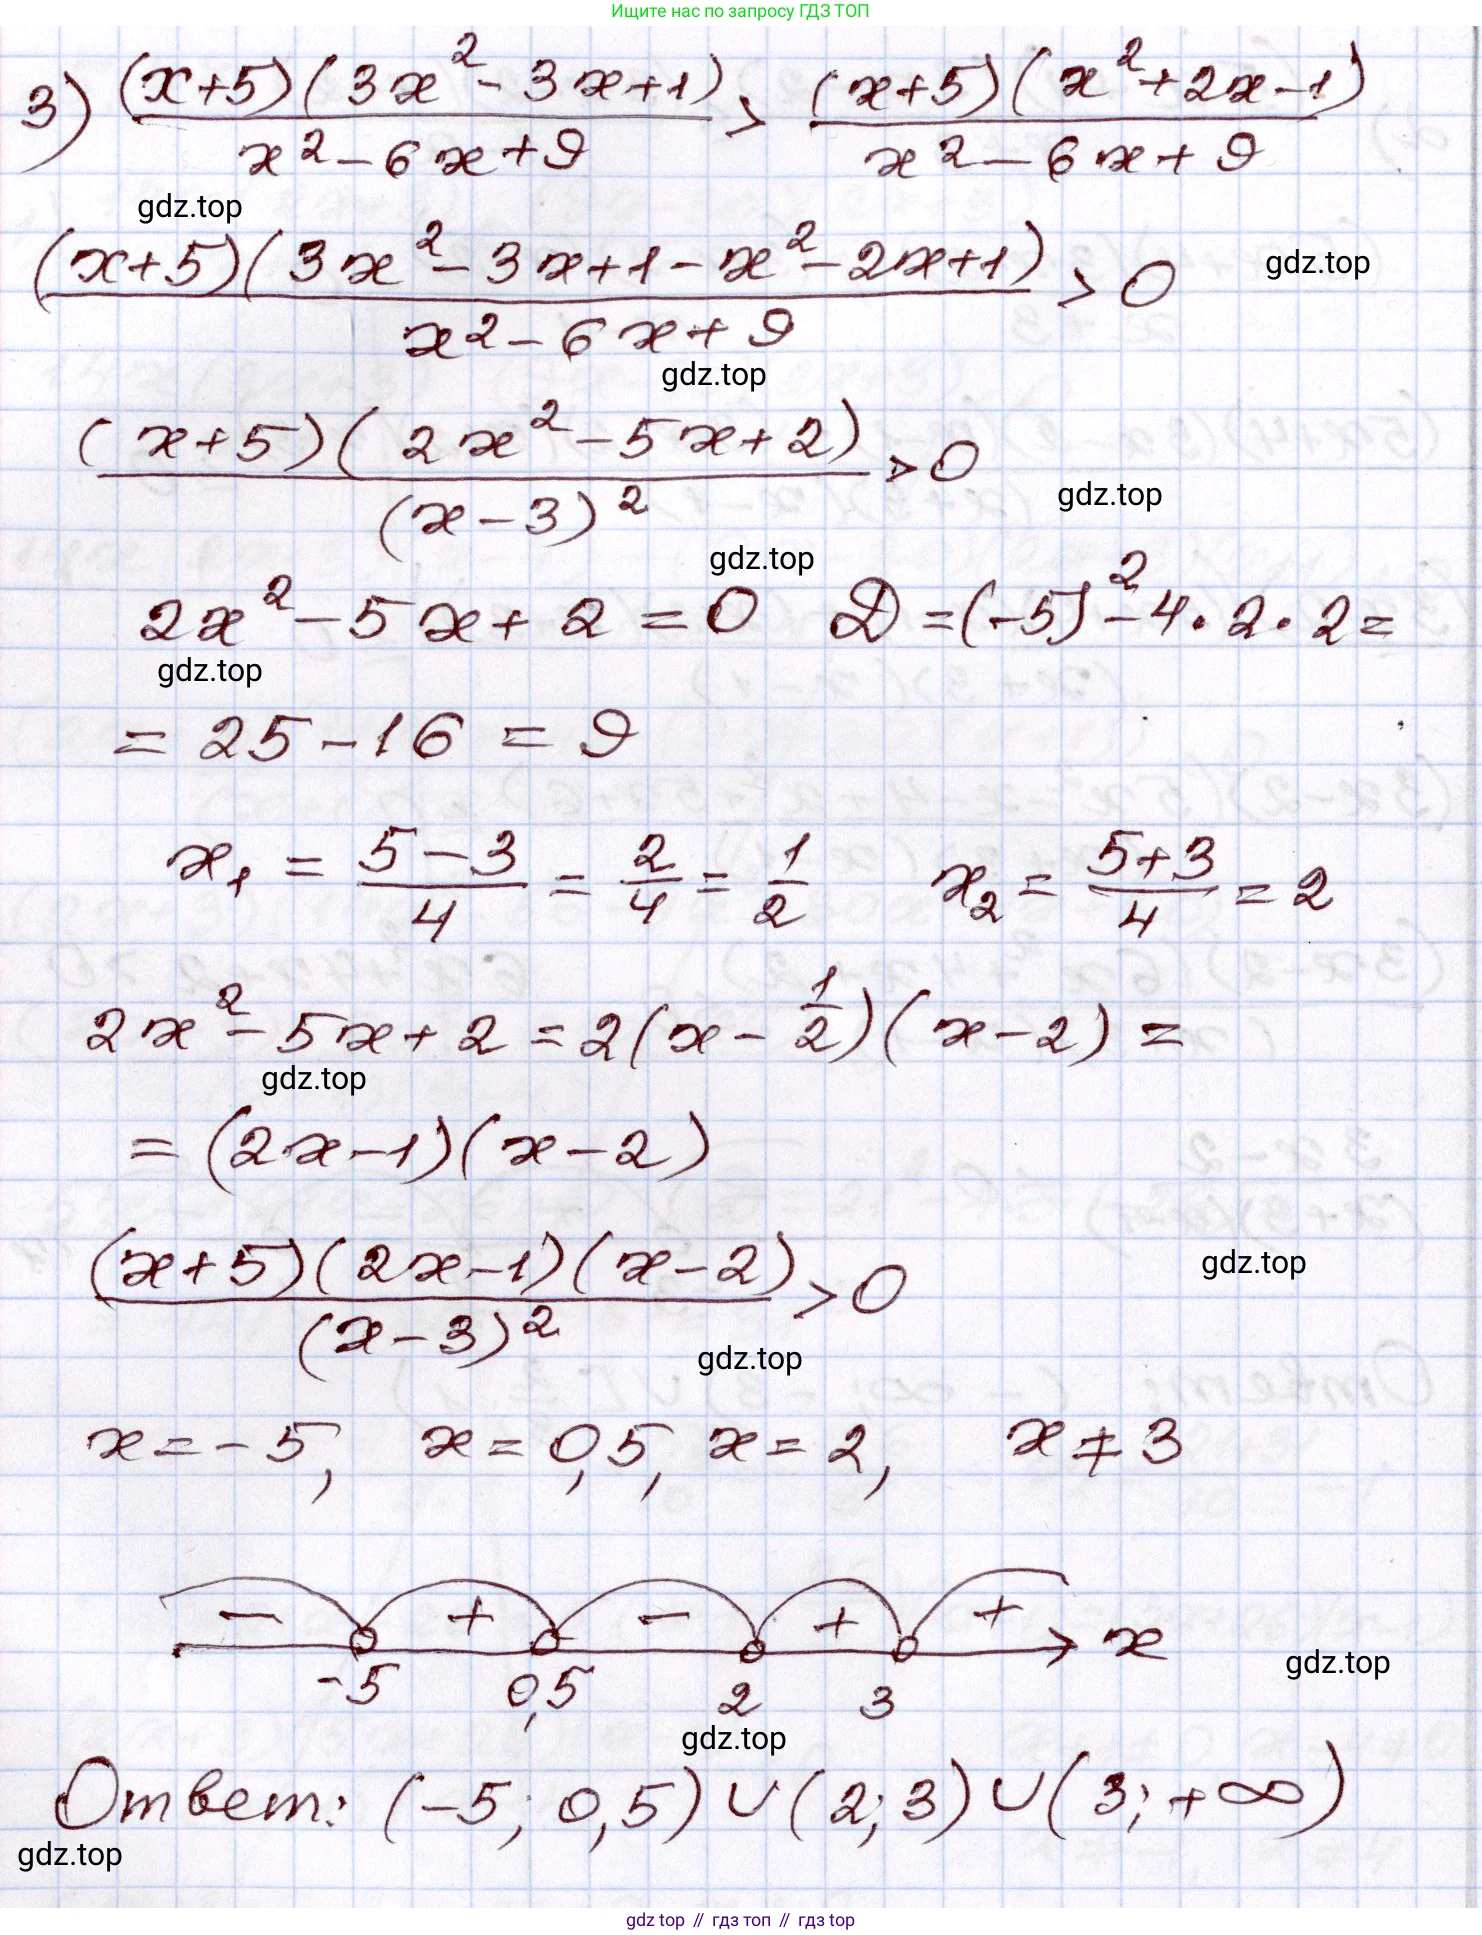 Ищите нас по запросу ГДЗ ТОП
3) (x+5)(3x²-3x+1)/(x²-6x+9) > (x+5)(x²+2x-1)/(x²-6x+9)
gdz.top
(x+5)(3x²-3x+1-x²-2x+1)/(x²-6x+9) > 0
gdz.top
gdz.top
(x+5)(2x²-5x+2)/(x-3)² > 0
gdz.top
gdz.top
2x²-5x+2=0 D=(-5)²-4·2·2=
gdz.top
=25-16=9
x₁ = (5-3)/4 = 2/4 = 1/2 x₂ = (5+3)/4 = 2
2x²-5x+2=2(x-1/2)(x-2)=
gdz.top
=(2x-1)(x-2)
(x+5)(2x-1)(x-2)/(x-3)² > 0
gdz.top
gdz.top
x=-5, x=0,5, x=2, x≠3
- + - + +
x
-5 0,5 2 3
gdz.top
gdz.top
Ответ: (-5; 0,5)∪(2;3)∪(3;+∞)
gdz.top
gdz top // гдз топ // gdz top